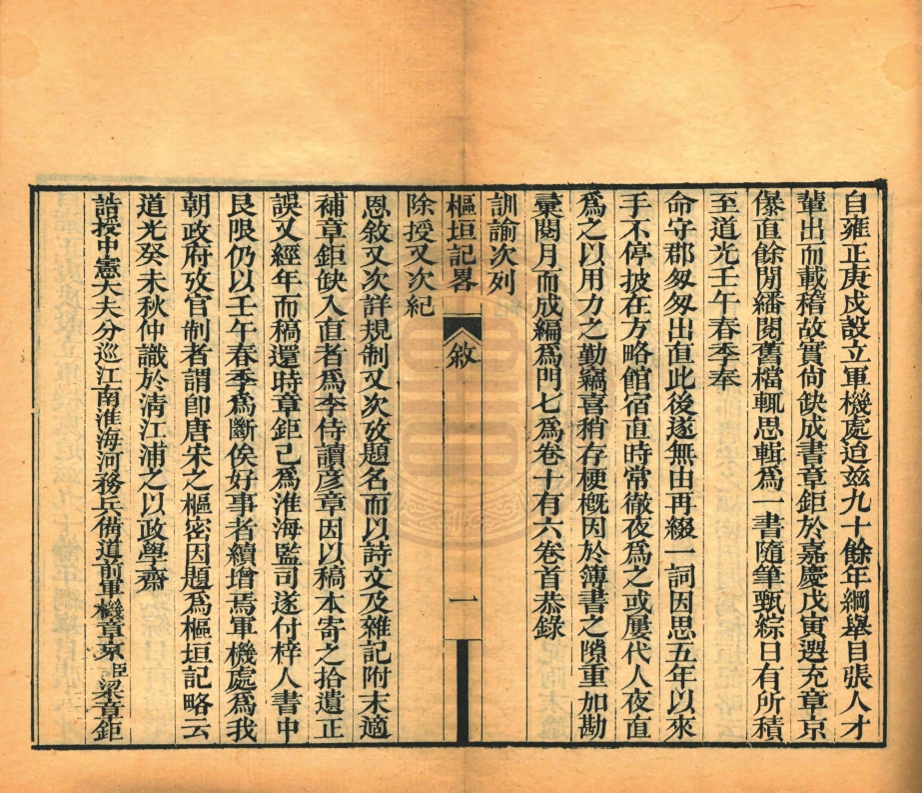 自雍正庚戌設立軍機處迨兹九十餘年綱舉目張人才
輩出而載稽故實尙缺成書章鉅於嘉慶戊寅選充章京
㬥直餘閒繙閱舊檔輒思輯爲一書隨筆甄綜日有所積
至道光壬午春季奉
命守郡匆匆出直此後遂無由再綴一詞因思五年以來
手不停披在方略館宿直時常徹夜爲之或屢代人夜直
爲之以用力之勤竊喜稍存梗槪因於簿書之隙重加勘
彙閱月而成編爲門七爲卷十有六卷首恭錄
訓諭次列
樞垣記畧
敘
一
除授又次紀
恩敘又次詳規制又次攷題名而以詩文及雜記附末適
補章鉅缺入直者爲李侍讀彥章因以稿本寄之拾遺正
誤又經年而稿還時章鉅已爲淮海監司遂付梓人書中
艮限仍以壬午春季爲斷俟好事者續增焉軍機處爲我
朝政府攷官制者謂卽唐宋之樞密因題爲樞垣記略云
道光癸未秋仲識於淸江浦之以政學齋
誥授中憲大夫分巡江南淮海河務兵備道前軍機章京臣梁章鉅